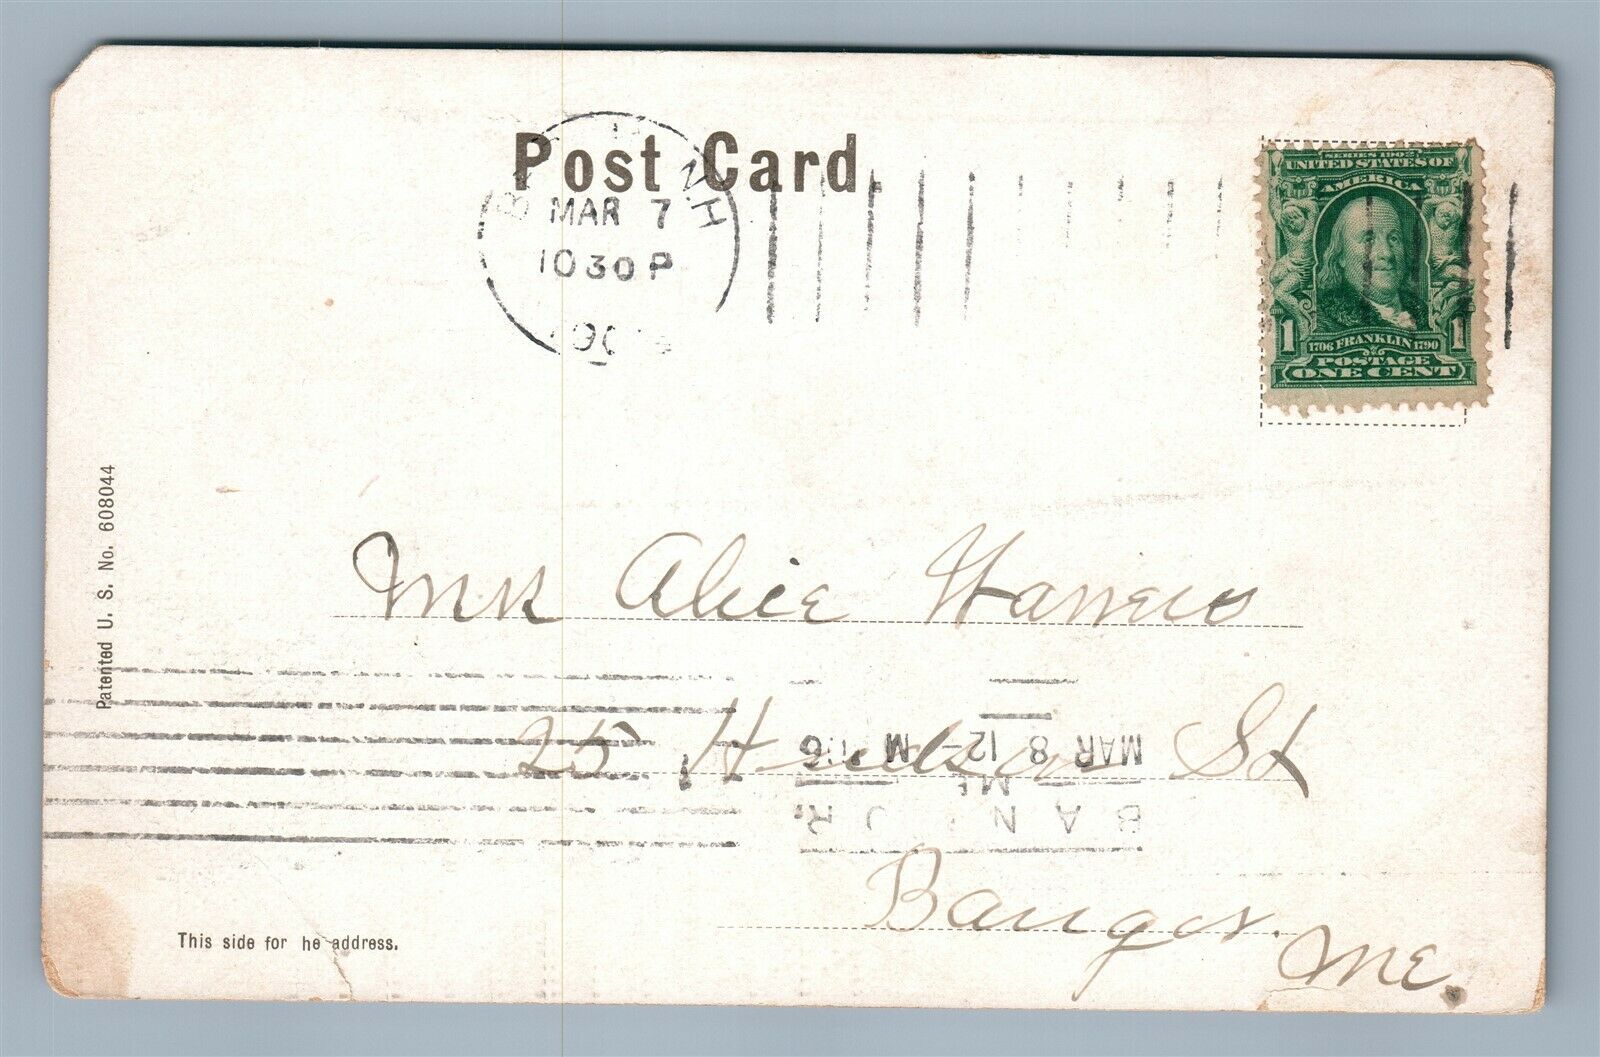 Post Card.
MAR 7
1030 P
SERIES 1902
UNITED STATES OF
AMERICA
1 1706 FRANKLIN 1790 1
POSTAGE
ONE CENT
Patented U. S. No. 608044
Alice
25 Hudson St
MAR 8 12-M
Bangor.
Me.
This side for he address.